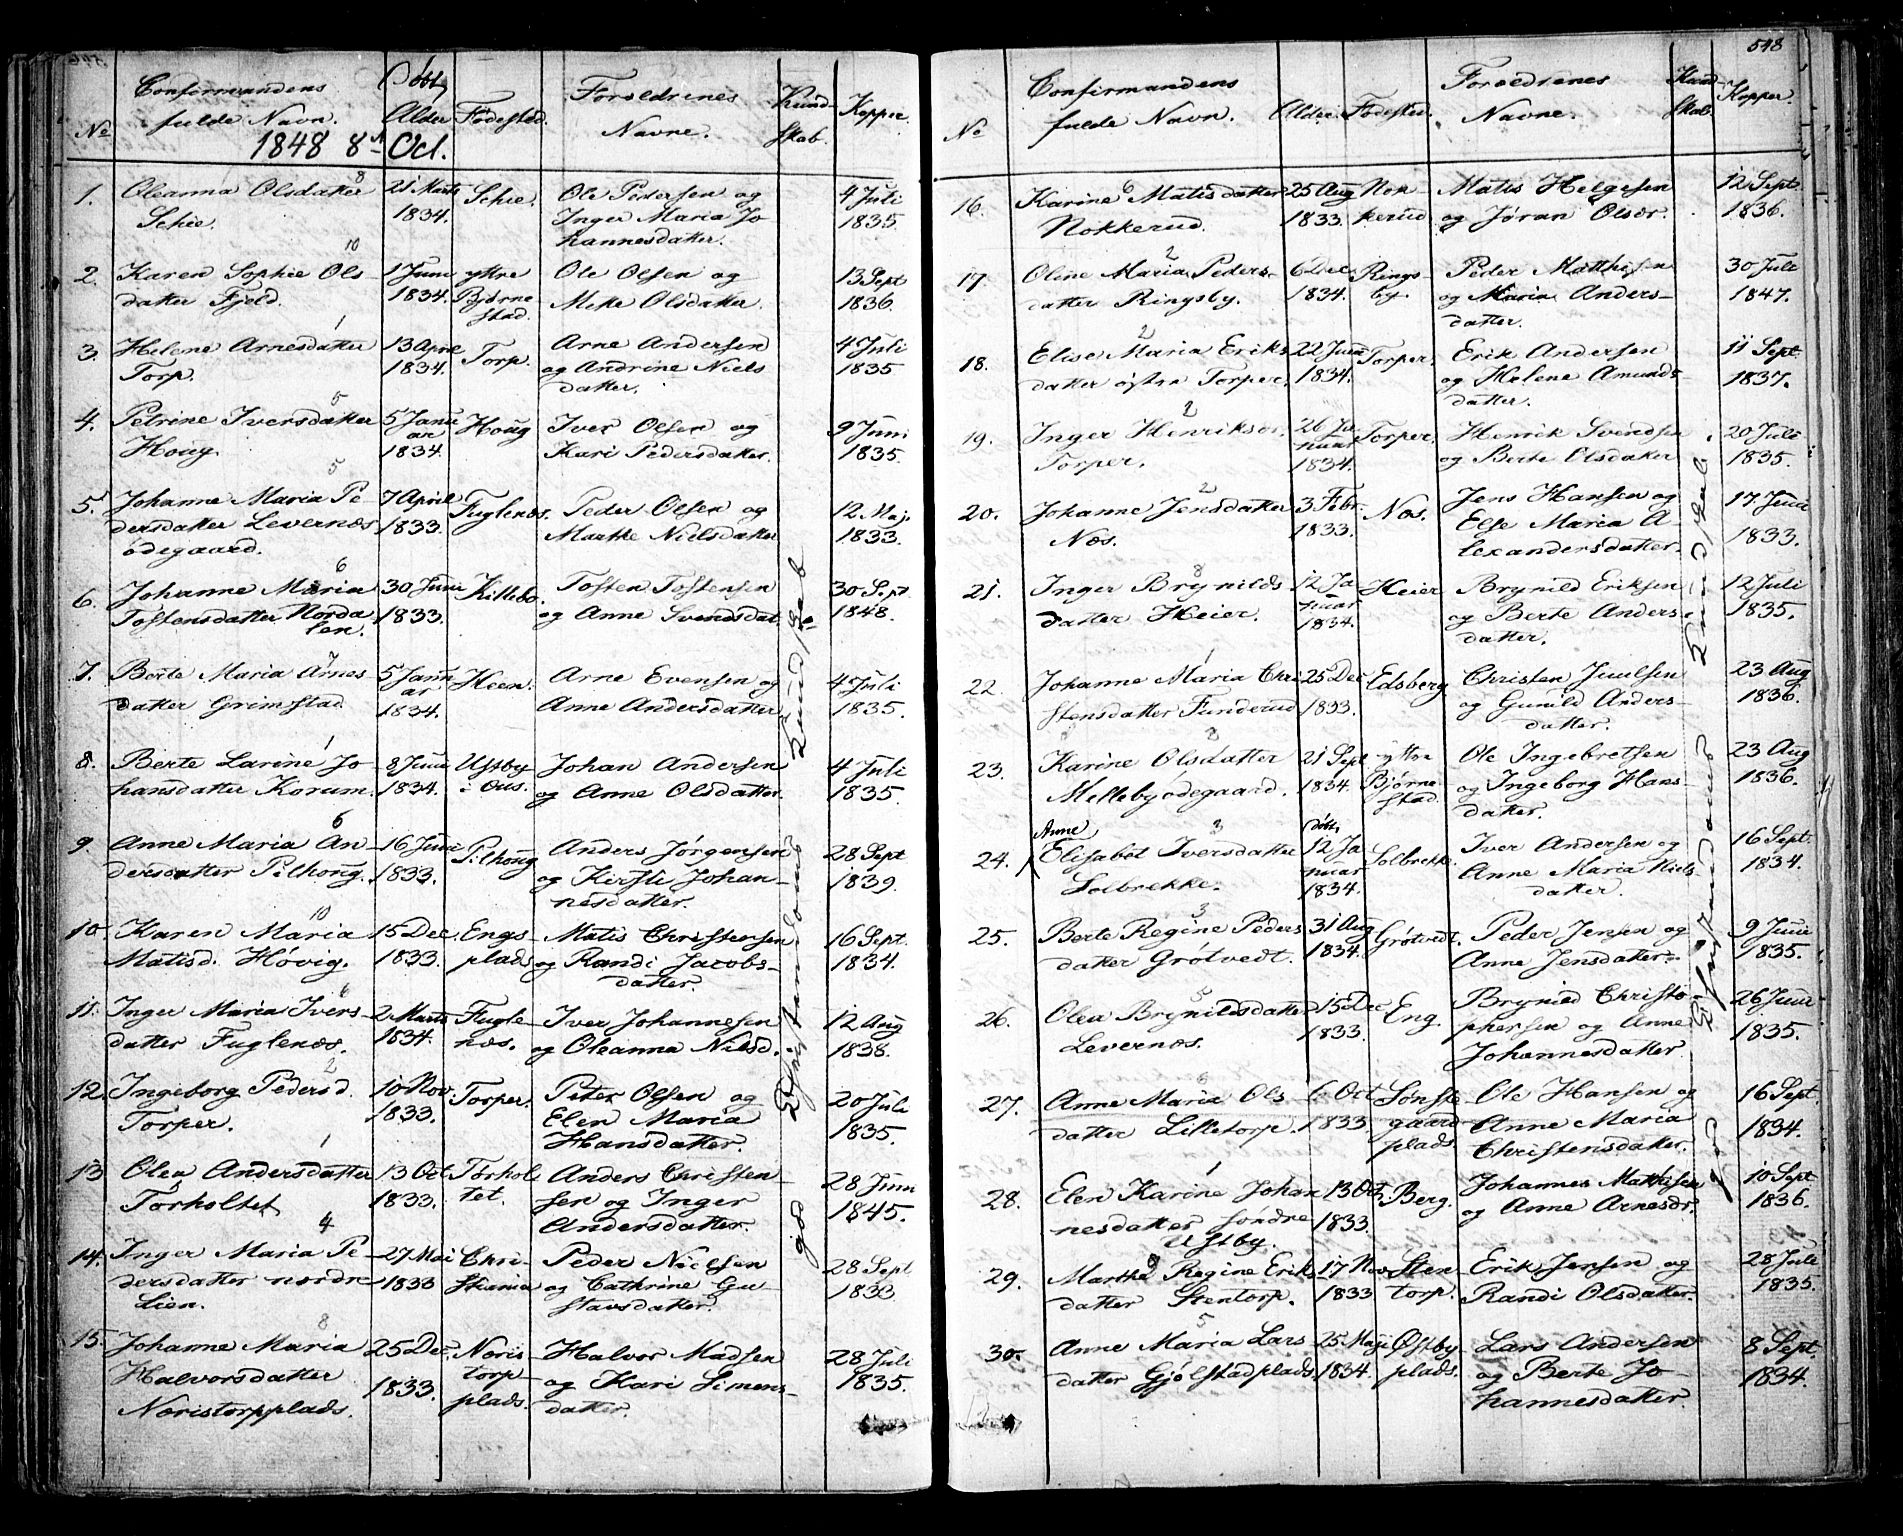 Confirmandens Døbt Forældrenes Kund-
No fulde Navn. Alder Fødested. Navne. skab. Kopper.
1848 8de Oct.
1. Oleanna Olsdatter 8 21 Marts Schie. Ole Pedersen og 4 Juli
Schie. 1834. Inger Maria Jo 1835.
hannesdatter.
10
2. Karen Sophie Ols- 1 Juni yttre Ole Olsen og 13 Sept
datter Fjeld. 1834. Bjørne Mike Olsdatter. 1836.
stad.
1
3. Helene Arnesdatter 13 April Torp. Arne Andersen 4 Juli
Torp. 1834. og Andrine Niels 1835
datter.
5
4. Petrine Iversdatter 5 Janu Houg Iver Olsen og 9 Juni
Houg. ar 1834. Kari Pedersdatter. 1835.
5
5. Johanne Maria Pe- 7 April Fuglenæs. Peder Olsen og 12 Maj.
dersdatter Levernæs 1833. Marthe Nielsdatter 1833.
ødegaard.
6
6. Johanne Maria 30 Juni Killebo. Tosten Tostensen 30 Sept
Tostensdatter Norda 1833. og Anne Svendsdat 1848.
len.
7
7. Berte Maria Arnes 5 Janu Heen. Arne Evensen og 4 Juli
datter Grimstad ar 1834. Anne Andersdatter 1835.
1
8. Berte Larine Jo 8 Juni Ustby Johan Andersen 4 Juli
hansdatter Korum. 1834. i Ous. og Anne Olsdatter. 1835.
6
9. Anne Maria An- 16 Juni Pilhoug Anders Jørgensen 28 Sept
dersdatter Pilhoug. 1833. og Kirsti Johan- 1839.
nesdatter.
10
10. Karen Maria 15 Dec. Engs- Matis Christensen 16 Sept.
Matisd. Høvig. 1833. plads og Randi Jacobs- 1834.
datter.
6
11. Inger Maria Ivers- 2 Marts Fugle- Iver Johannesen 12 Aug
datter Fuglenæs. 1834. næs. og Oleanna Nielsd. 1838.
2
12. Ingeborg Pedersd. 10 Nov. Torper. Peter Olsen og 20 Juli
Torper. 1833. Elen Maria 1835.
Hansdatter.
1
13 Olea Andersdatter 13 Oct Torhol Anders Christen- 28 Juni
Torholtet 1833. tet. sen og Inger 1845.
Andersdatter.
4
14. Inger Maria Pe- 27 Mai Chri- Peder Nielsen 28 Sept
dersdatter nordre 1833 stiania og Cathrine Gu- 1833
Lien. stavsdatter.
8
15. Johanne Maria 25 Dec. Noris Halvor Madsen 28 Juli
Halvorsdatter 1833. torp og Kari Simens- 1835.
Noristorpplads. plads. datter.
Kundskab
god
548
Confirmandens Forældrenes Kund-
No fulde Navn. Alder. Fødested. Navne. skab. Kopper.
6
16. Karine Matisdatter 25 Aug Nok- Matis Helgesen 12 Sept.
Nokkerud. 1833. kerud og Jøran Olsdr. 1836.
2
17. Oline Maria Peders- 6 Dec Rings- Peder Matthisen 30 Juli
datter Ringsby. 1834. by. og Maria Anders- 1847.
datter.
2
18. Elise Maria Eriks 22 Juni Torper. Erik Andersen 11 Sept.
datter østre Torper. 1834. og Helene Amunds- 1837.
datter.
2
19. Inger Henriksdr. 26 Ja Torper. Henrik Svendsen 20 Juli
Torper. nuar 1834. og Berte Olsdatter 1835.
2
20. Johanne Jensdatter 3 Febr. Næs. Jens Hansen og 17 Juni
Næs. 1833. Else Maria A- 1833.
lexandersdatter.
8
21. Inger Brynilds 12 Ja Heier Brynild Eriksen 12 Juli
datter Heier. nuar 1834. og Berte Anders- 1835.
datter.
1
22. Johanne Maria Chri 25 Dec Edsberg Christen Juulsen 23 Aug
stensdatter Funderud 1833. og Gunild Anders- 1836.
datter.
3
23. Karine Olsdatter 21 Sept yttre Ole Ingebretsen 23 Aug
Mellebyødegaard. 1834. Bjørne og Ingeborg Hans- 1836.
stad. datter.
Anne 3 døbt
24. Elisabet Iversdatter 12 Ja Solbrekke. Iver Andersen og 16 Sept.
Solbrekke. nuar 1834. Anne Maria Niels- 1834.
datter.
3
25. Berte Regine Peders 31 Aug Grøtvedt. Peder Jensen og 9 Juni
datter Grøtvedt. 1834. Anne Jensdatter. 1835.
5
26. Olea Brynildsdatter 15 Dec Eng. Brynild Christo- 26 Juni
Levernæs. 1833. phersen og Anne 1835.
Johannesdatter.
27. Anne Maria Ols- 6 Oct Sønste Ole Hansen og 16 Sept.
datter Lilletorp. 1833 gaard Anne Maria 1834.
plads. Christensdatter.
1
28. Elen Karine Johan 13 Oct. Berg. Johannes Mathisen 10 Sept
nesdatter søndre 1833. og Anne Arnesdr. 1836.
Ustby.
29. Marthe Regine Eriks 17 Nov Sten Erik Jensen og 28 Juli
datter Stentorp. 1833 torp. Randi Olsdatter. 1835.
5
30. Anne Maria Lars 25 Maji Østby Lars Andersen 8 Sept.
datter Gjølstadplads. 1834. plads. og Berte Jo- 1834.
hannesdatter.
Kundskab
god